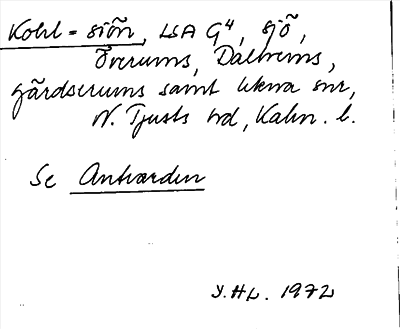 Kohl-siön, LSA G4, sjö,
Överums, Dalhems,
Gärdserums samt Ukna snr,
N. Tjusts hd, Kalm. l.
Se Antvarden
Y. HL. 1972